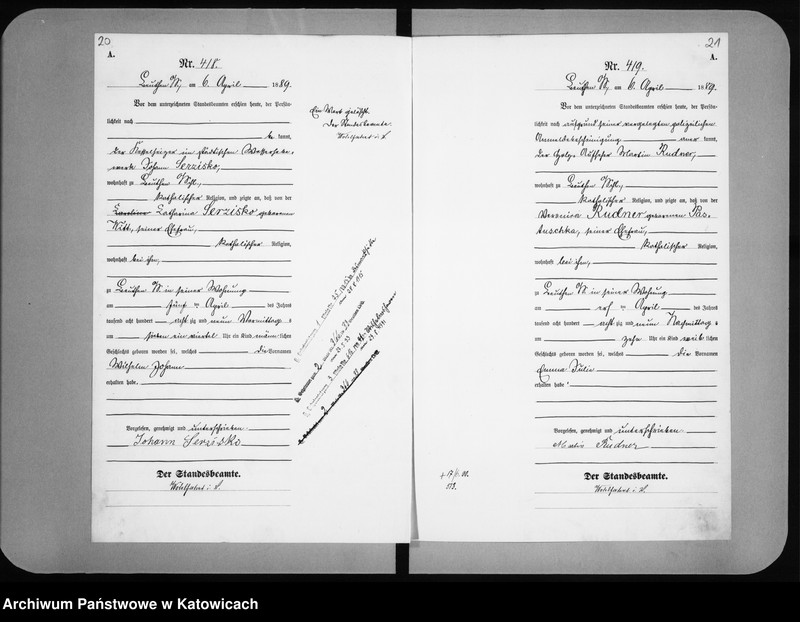 20
A.
Nr. 418.
Beuthen O/S, am 6. April 1889.
Vor dem unterzeichneten Standesbeamten erschien heute, der Persön-
lichkeit nach
be kannt,
der Kesselheizer im städtischen Wasserhebe-
werk Johann Serzisko,
wohnhaft zu Beuthen O/Schl.,
katholischer Religion, und zeigte an, daß von der
Catharina Serzisko geborenen
Witt, seiner Ehefrau,
katholischer Religion,
wohnhaft bei ihm,
zu Beuthen O/S in seiner Wohnung
am fünf ten April des Jahres
tausend acht hundert acht zig und neun Vormittag s
um sieben ein viertel Uhr ein Kind männ lichen
Geschlechts geboren worden sei, welches die Vornamen
Wilhelm Johann
erhalten habe.
Vorgelesen, genehmigt und unterschrieben
Johann Serzisko
Der Standesbeamte.
Wohlfahrt i. V.
Ein Wort gelöscht.
Der Standesbeamte.
Wohlfahrt i. V.
21
A.
Nr. 419.
Beuthen O/S, am 6. April 1889.
Vor dem unterzeichneten Standesbeamten erschien heute, der Persön-
lichkeit nach auf Grund seiner vorgelegten polizeilichen
Anmeldebescheinigung aner kannt,
der Aufseher Martin Rudner,
wohnhaft zu Beuthen O/Schl.,
katholischer Religion, und zeigte an, daß von der
Veronica Rudner geborenen Pas-
tuschka, seiner Ehefrau,
katholischer Religion,
wohnhaft bei ihm,
zu Beuthen O/S in seiner Wohnung
am ten April des Jahres
tausend acht hundert acht zig und neun Nachmittag s
um zehn Uhr ein Kind weib lichen
Geschlechts geboren worden sei, welches die Vornamen
Emma Julie
erhalten habe.
Vorgelesen, genehmigt und unterschrieben
Rudner
Der Standesbeamte.
Wohlfahrt i. V.
Archiwum Państwowe w Katowicach